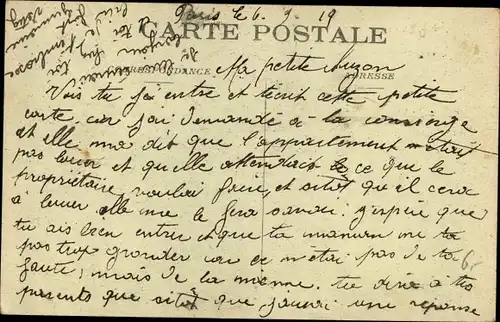 Paris le 6. 9. 19
CARTE POSTALE
CORRESPONDANCE
ADRESSE
Ma petite Suzon
Vois tu j'ai entre et t'ecrit cette petite
carte, car j'ai demandé à la concierge
et elle ma dit que l'appartement n'etait
pas louer et quelle attendait ce que le
propriétaire voulai faire, et sitot qu'il cera
a louer elle me le fera savoir. j'espère que
tu ais bien entrer et que ta maman ne ta
pas trop gronder car ce n'etai pas de ta
faute, mais de la mienne. tu dira à tes
parents que sitôt que j'aurai une reponse